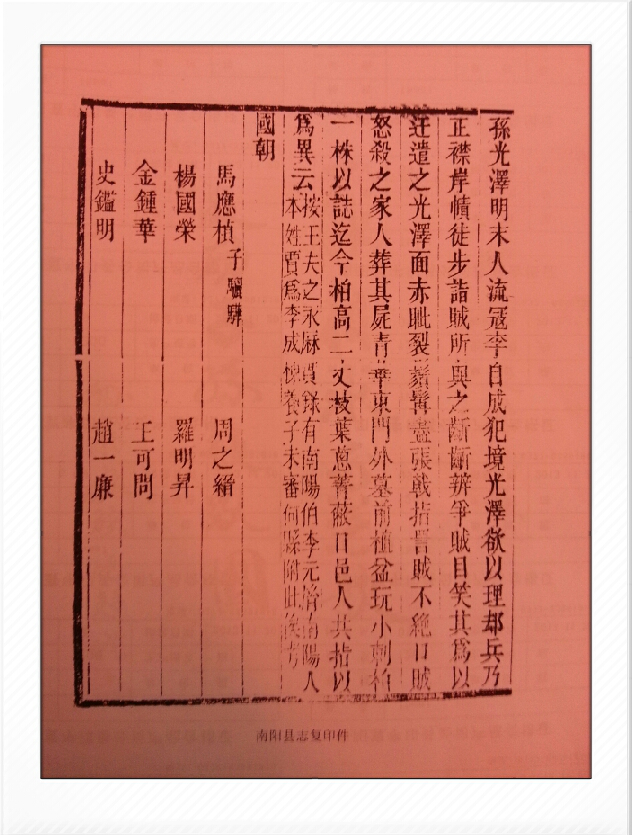 孫光澤明末人流寇李自成犯境光澤欲以理却兵乃
正襟岸幘徒步詣賊所與之齗齗辨爭賊目笑其爲以
迂遣之光澤面赤眦裂鬚髯盡張戟指詈賊不絕口賊
怒殺之家人葬其屍青華東門外墓前植盆玩小刺柏
一株以誌迄今柏高二丈枝葉蔥菁蔽日邑人共指以
爲異云
按王夫之永厤實錄有南陽伯李元胤南陽人
本姓賈爲李成棟養子未審何縣附此俟考
國朝
馬應楨 子驥驊 周之縉
楊國榮 羅明昇
金鍾華 王可問
史鑑明 趙一廉
南阳县志复印件